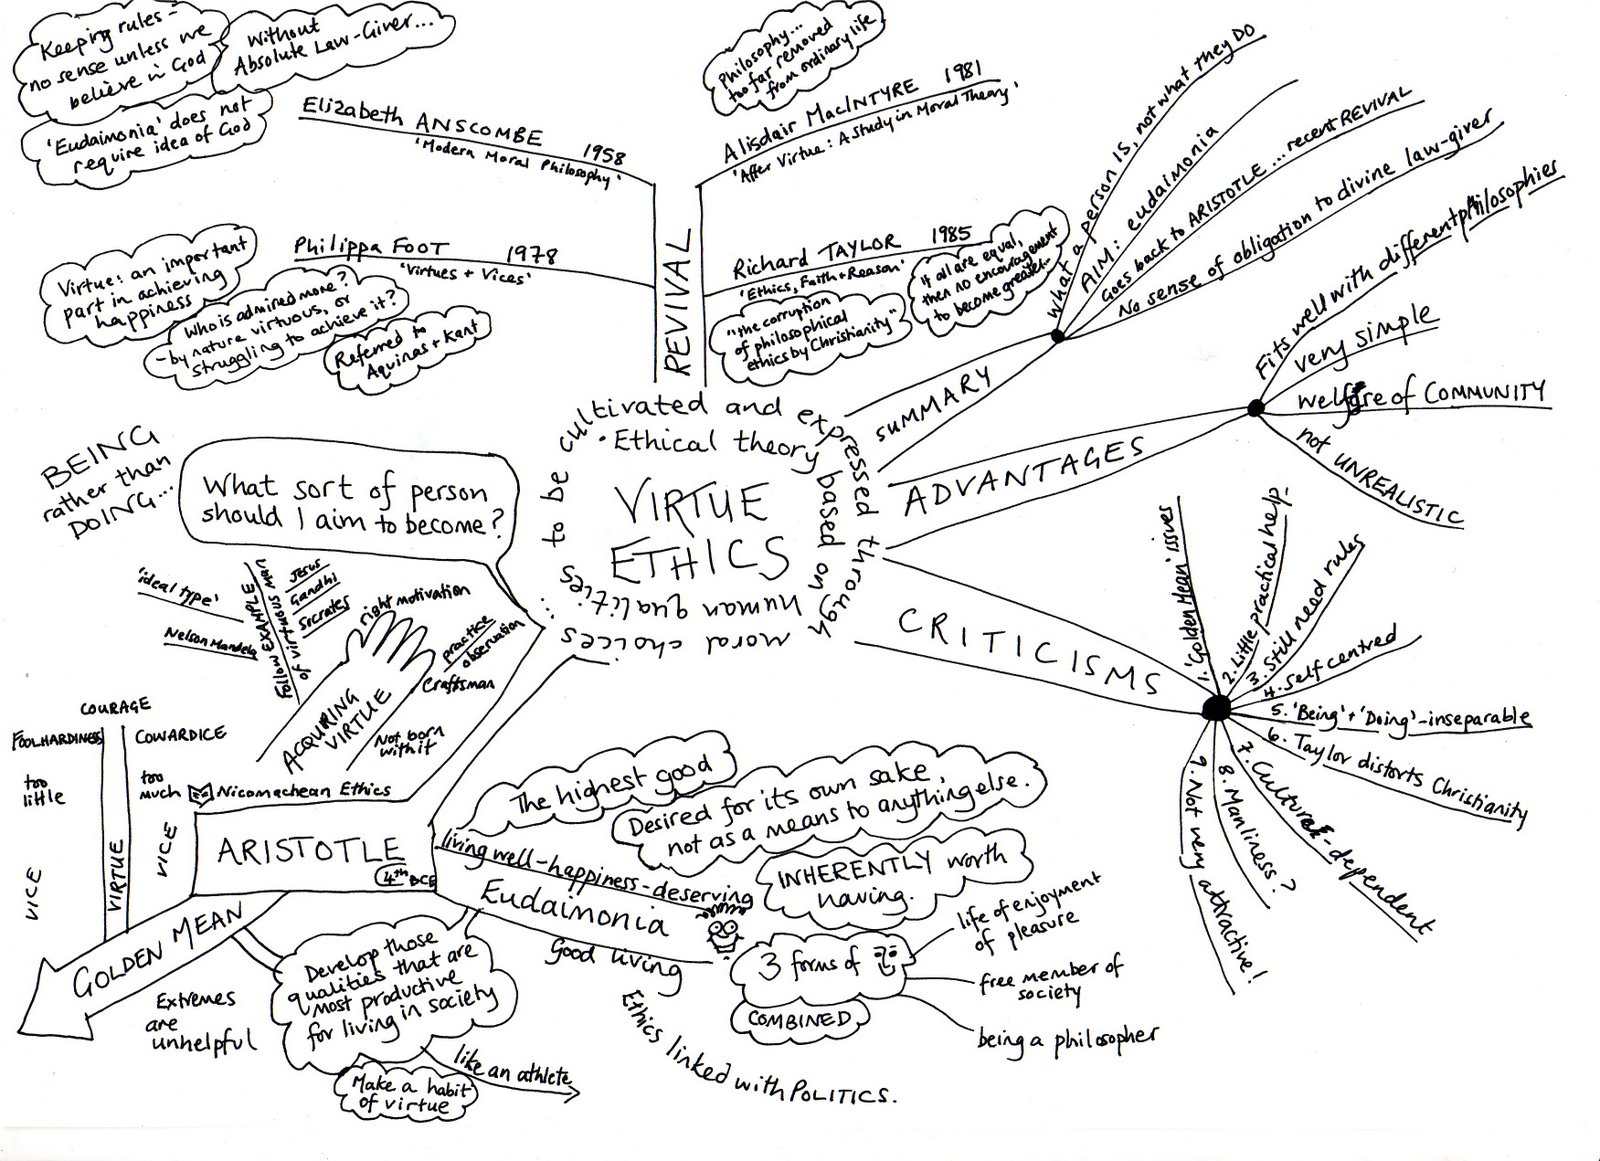 Keeping rules -
no sense unless we
believe in God
Without
Absolute Law-Giver...
'Eudaimonia' does not
require idea of God
Elizabeth ANSCOMBE 1958
'Modern Moral Philosophy'
Philosophy...
too far removed
from ordinary life
Alisdair MacINTYRE 1981
'After Virtue: A Study in Moral Theory'
Virtue: an important
part in achieving
happiness
Philippa FOOT 1978
'Virtues + Vices'
Who is admired more?
- by nature virtuous, or
struggling to achieve it?
Referred to
Aquinas + Kant
REVIVAL
Richard TAYLOR 1985
'Ethics, Faith + Reason'
"the corruption
of philosophical
ethics by Christianity"
If all are equal,
then no encouragement
to become greater...
SUMMARY
What a person IS, not what they DO
AIM: eudaimonia
Goes back to ARISTOTLE ... recent REVIVAL
No sense of obligation to divine law-giver
ADVANTAGES
Fits well with different philosophies
very simple
welfare of COMMUNITY
not UNREALISTIC
CRITICISMS
1. 'Golden Mean' issues
2. Little practical help.
3. Still need rules
4. Self centred
5. 'Being' + 'Doing' - inseparable
6. Taylor distorts Christianity
7. Culture - dependent
8. Manliness?
9. Not very attractive!
VIRTUE
ETHICS
• Ethical theory based on human qualities
to be cultivated and expressed through moral choices...
BEING
rather than
DOING...
What sort of person
should I aim to become?
'ideal type'
Nelson Mandela
Follow EXAMPLE
of virtuous man
Jesus
Gandhi
Socrates
right motivation
practice
observation
Craftsman
ACQUIRING
VIRTUE
Not born
with it
COURAGE
FOOLHARDINESS
COWARDICE
too
little
too
much
VICE
VIRTUE
VICE
Nicomachean Ethics
ARISTOTLE
4th BCE
GOLDEN MEAN
Extremes
are
unhelpful
Develop those
qualities that are
most productive
for living in society
Make a habit
of virtue
like an athlete
living well-happiness-deserving
Eudaimonia
Good living
The highest good
Desired for its own sake,
not as a means to anything else.
INHERENTLY worth
having.
3 forms of
COMBINED
life of enjoyment
of pleasure
free member of
society
being a philosopher
Ethics linked with POLITICS.